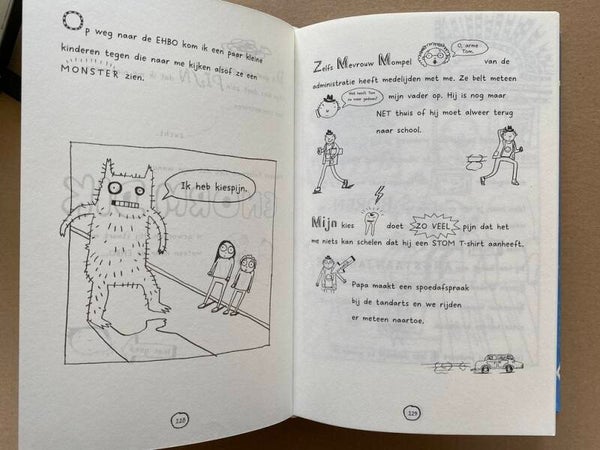 Op weg naar de EHBO kom ik een paar kleine
kinderen tegen die naar me kijken alsof ze een
MONSTER zien.
Ik heb kiespijn.
128
Zelfs Mevrouw Mompel
O, arme
Tom.
van de
administratie heeft medelijden met me. Ze belt meteen
mijn vader op. Hij is nog maar
NET thuis of hij moet alweer terug
naar school.
Mijn kies doet ZO VEEL pijn dat het
me niets kan schelen dat hij een STOM T-shirt aanheeft.
Papa maakt een spoedafspraak
bij de tandarts en we rijden
er meteen naartoe.
129